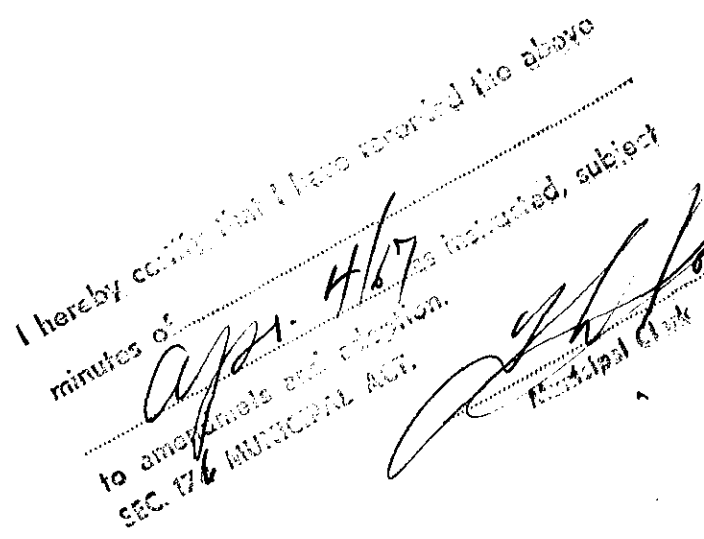 I hereby certify that I have recorded the above
minutes of
Apr. 4/67 as instructed, subject
to amendmets and adoption.
SEC. 176 MUNICIPAL ACT.
Municipal Clerk